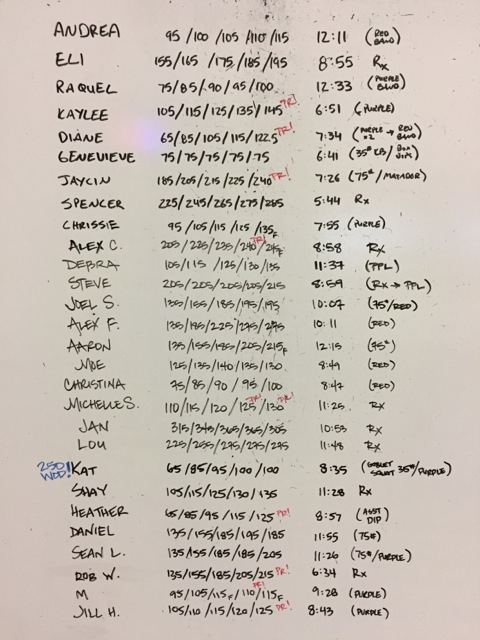 ANDREA 95/100/105/110/115 12:11 (RED BAND)
ELI 155/165/175/185/195 8:55 Rx
RAQUEL 75/85/90/95/100 12:33 (PURPLE BAND)
KAYLEE 105/115/125/135/145 PR! 6:51 (PURPLE)
DIANE 65/85/105/115/122.5 PR! 7:34 (PURPLE x2 → RED BAND)
GENEVIEVE 75/75/75/75/75 6:41 (35# KB/BOX DIPS)
JAYCIN 185/205/215/225/240 PR! 7:26 (75#/MATADOR)
SPENCER 225/245/265/275/285 5:44 Rx
CHRISSIE 95/105/115/125/135F 7:55 (PURPLE)
ALEX C. 205/225/235/240 PR!/245F 8:58 Rx
DEBRA 105/115/125/130/135 11:37 (PPL)
STEVE 205/205/205/205/215 8:59 (Rx → PPL)
JOEL S. 135/155/185/195/195 10:07 (75#/RED)
ALEX F. 135/185/225/275/275 10:11 (RED)
AARON 135/155/185/205/215F 12:15 (75#)
MOE 125/135/140/135/130 8:49 (RED)
CHRISTINA 75/85/90/95/100 8:47 (RED)
MICHELLE S. 110/115/120/125 PR!/130 PR! 11:25 Rx
JAN 315/345/365/365/305 10:53 Rx
LOU 225/255/275/275/275 11:48 Rx
250 WOD! KAT 65/85/95/100/100 8:35 (GOBLET SQUAT 35#/PURPLE)
SHAY 105/115/125/130/135 11:28 Rx
HEATHER 65/85/95/115/125 PR! 8:57 (ASST DIP)
DANIEL 135/155/185/195/185 11:55 (75#)
SEAN L. 135/155/185/185/205 11:26 (75#/PURPLE)
ROB W. 135/155/185/205/215 PR! 6:34 Rx
M 95/105/115F/110 PR!/115F 9:28 (PURPLE)
JILL H. 105/110/115/120/125 PR! 8:43 (PURPLE)